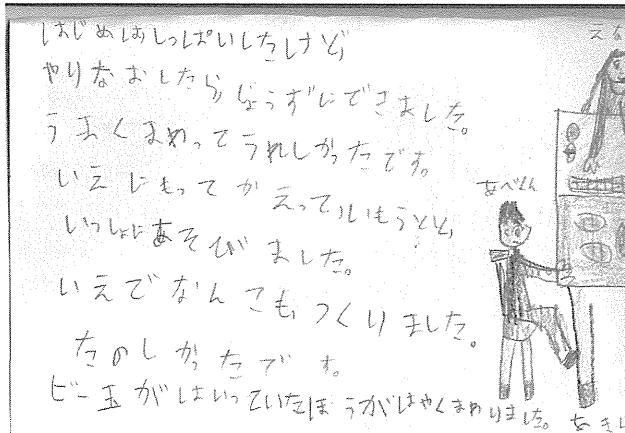 はじめはしっぱいしたけど、
やりなおしたら、じょうずにできました。
うまくまわってうれしかったです。
いえにもってかえって、いもうとと、
いっしょにあそびました。
いえでなんこも、つくりました。
たのしかったです。
ビー玉がはいっていたほうがはやくまわりました。
あべくん
えな